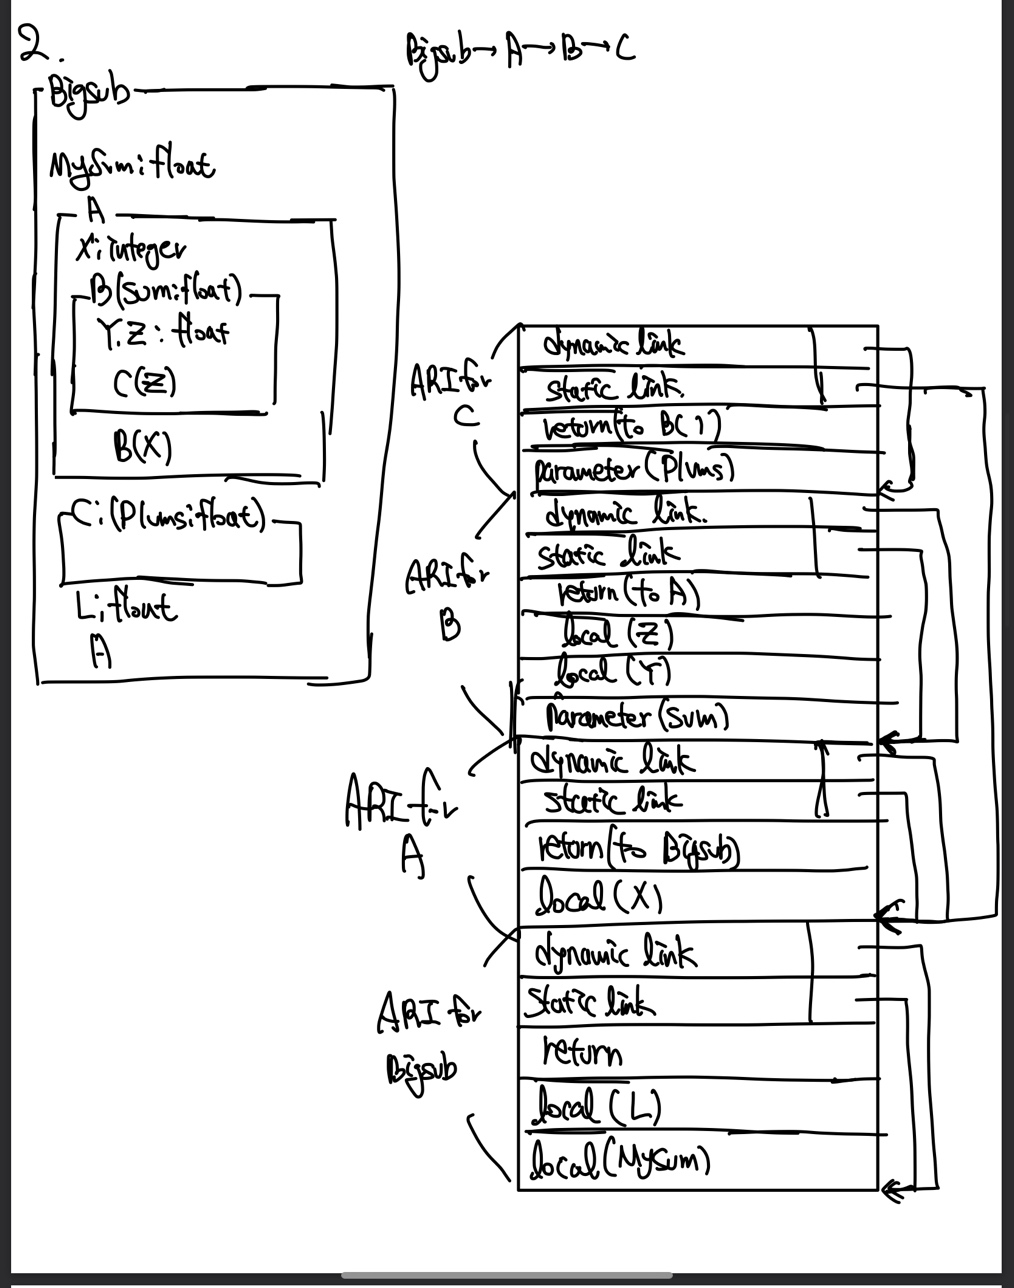 2.
Bigsub→A→B→C
Bigsub
MySum: float
A
X: integer
B(Sum: float)
Y, Z: float
C(Z)
B(X)
C: (Plums: float)
L: float
A
ARI for
C
dynamic link
static link.
return (to B( ))
parameter (Plums)
ARI for
B
dynamic link.
static link
return (to A)
local (Z)
local (Y)
parameter (Sum)
ARI for
A
dynamic link
static link
return (to Bigsub)
local (X)
ARI for
Bigsub
dynamic link
static link
return
local (L)
local (MySum)